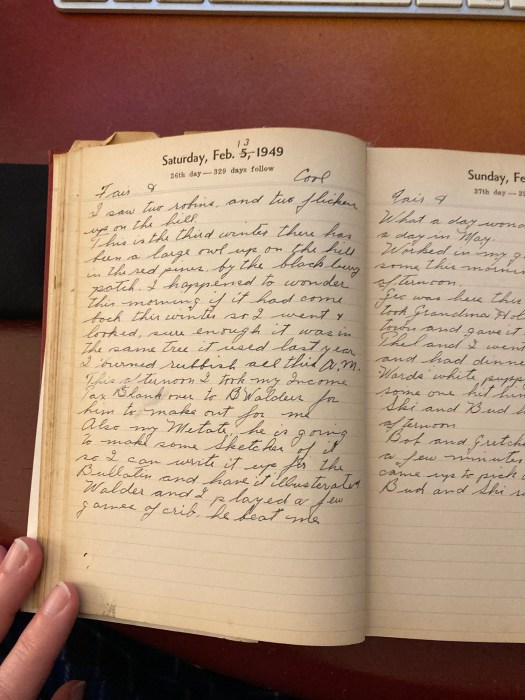 13
Saturday, Feb. 5, 1949
36th day — 329 days follow
Fair & Cool
I saw two robins, and two flickers
up on the hill
This is the third winter there has
been a large owl up on the hill
in the red pines, by the black berry
patch. I happened to wonder
this morning if it had come
back this winter so I went &
looked, sure enough it was in
the same tree it used last year
I burned rubbish all this A.M.
This afternoon I took my Income
Tax Blank over to B Walders for
him to make out for me
Also my Metate, he is going
to make some Sketches of it
so I can write it up for the
Bulletin and have it illusterated
Walder and I played a few
games of crib. he beat me
Sunday, Fe
37th day — 32
Fair &
What a day wond
a day in May.
Worked in my g
some this mornin
afternoon.
Geo was here this
took Grandma Hol
town and gave it
Thel and I went
and had dinne
Wards white pupp
some one hit him
Ski and Bud
afternoon
Bob and Gretch
a few minutes
came up to pick
Bud and Ski